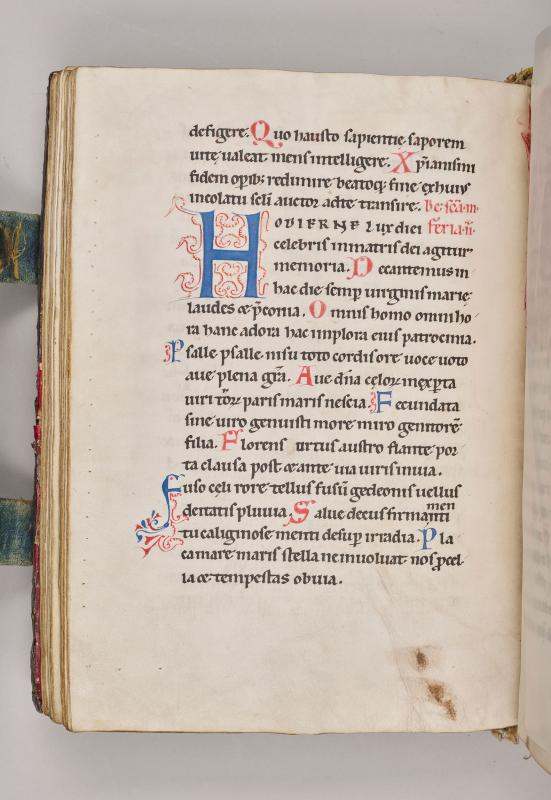 defigere. Quo hausto sapientie saporem
uite ualeat mens intelligere. Xp̄ianism
fidem op̄ib; redimire beatoq; fine exhui'
incolatu scl̄i auctor ad te transire. De sc̄a m.
HODIERNE lux diei feria .ii.
celebris in matris dei agitur
memoria. Decantemus in
hac die semp̄ uirginis marię
laudes ⁊ p̄conia. Omnis homo omni ho
ra hanc adora hac implora eius patrocinia.
Psalle psalle nisu toto cordis ore uoce uoto
aue plena gr̄a. Aue dn̄a celor' inexp̄ta
uiri tor' paris maris nescia. Fecundata
sine uiro genuisti more miro genitorē
filia. Florens ortus austro flante por
ta clausa post ⁊ ante uia uiris inuia.
Fuso celi rore tellus fusū gedeonis uellus
deitatis pluuia. Salue decus firmamenti
tu caliginose menti desup̄ irradia. Pla
ca mare maris stella ne inuoluat nos p̄cel-
la ⁊ tempestas obuia.